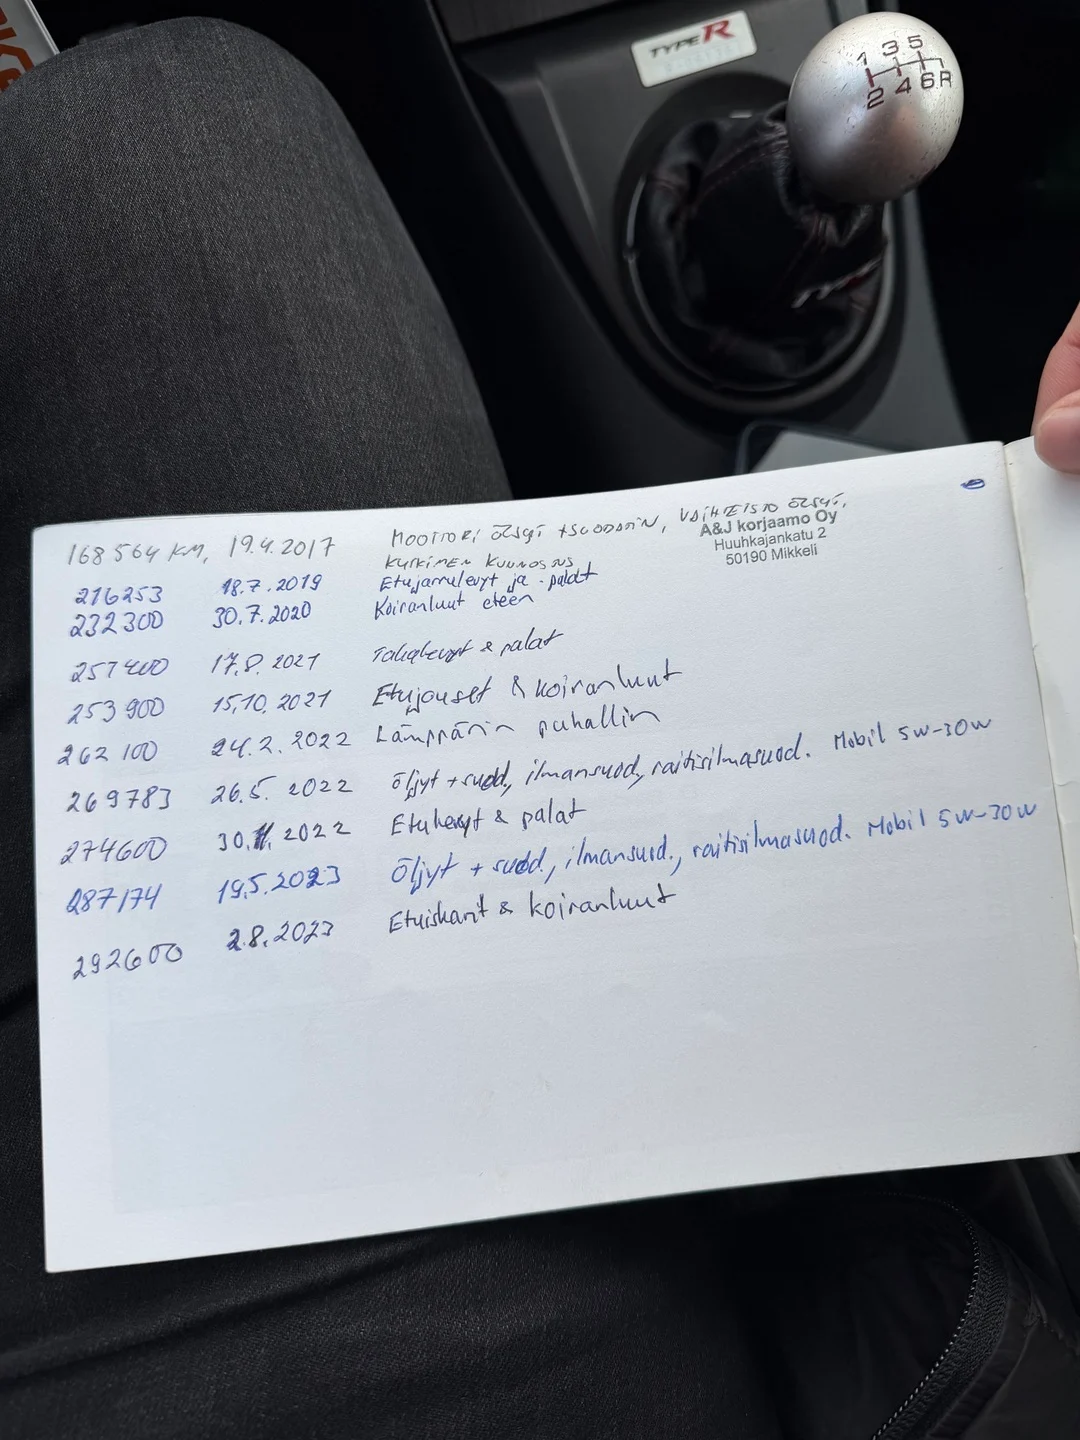 TYPE R
1 3 5
2 4 6 R
168 564 KM, 19.4.2017 MOOTTORI ÖLJYT + SUODATIN, VAIHTEISTO ÖLJYT,
KYTKIMEN KUUNOSNS
A&J korjaamo Oy
Huuhkajankatu 2
50190 Mikkeli
216253 18.7.2019 Etujarrulevyt ja -palat
232300 30.7.2020 Koiranluut eteen
251400 17.8.2021 Takalevyt & palat
253 900 15.10.2021 Etujouset & koiranluut
262 100 24.2.2022 Lämppärin puhallin
269783 26.5.2022 Öljyt + suod, ilmansuod, raitisilmasuod. Mobil 5W-30W
274600 30.11.2022 Etulevyt & palat
287174 19.5.2023 Öljyt + suod, ilmansuod., raitisilmasuod. Mobil 5W-30W
292600 2.8.2023 Etuiskarit & koiranluut